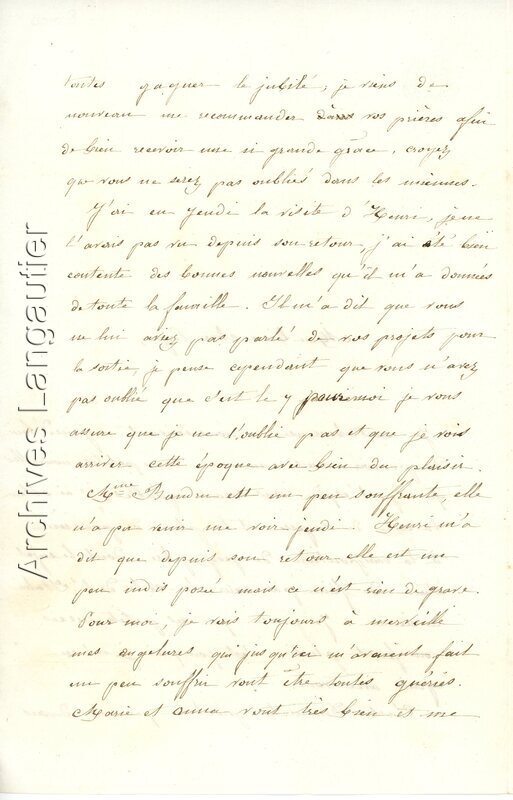 toutes gagner le jubilé, je viens de
nouveau me recommander dans vos prières afin
de bien recevoir une si grande grâce, croyez
que vous ne serez pas oubliés dans les miennes.
J'ai eu Jeudi la visite d'Henri, je ne
l'avais pas vu depuis son retour, j'ai été bien
contente des bonnes nouvelles qu'il m'a données
de toute la famille. Il m'a dit que vous
ne lui aviez pas parlé de vos projets pour
la sortie, je pense cependant que vous n'avez
pas oublié que c'est le 7 pour moi je vous
assure que je ne l'oublie pas et que je vois
arriver cette époque avec bien du plaisir.
Mme est un peu souffrante, elle
n'a pu venir me voir jeudi. Henri m'a
dit que depuis son retour elle est un
peu indisposée mais ce n'est rien de grave.
Pour moi, je vais toujours à merveille
mes engelures qui jusqu'ici m'avaient fait
un peu souffrir vont être toutes guéries.
Marie et Anna vont très bien et me
Archives Langautier